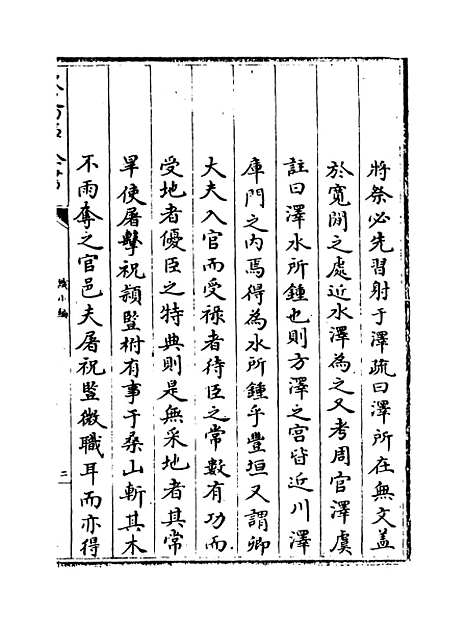 將祭必先習射于澤疏曰澤所在無文蓋
於寬閒之處近水澤為之又考周官澤虞
註曰澤水所鍾也則方澤之宫皆近川澤
庫門之内焉得為水所鍾乎豐垣又謂卿
大夫入官而受祿者待臣之常數有功而
受地者優臣之特典則是無采地者其常
旱使屠擊祝款豎柎有事于桑山斬其木
不雨奪之官邑夫屠祝豎微職耳而亦得
識小編
三